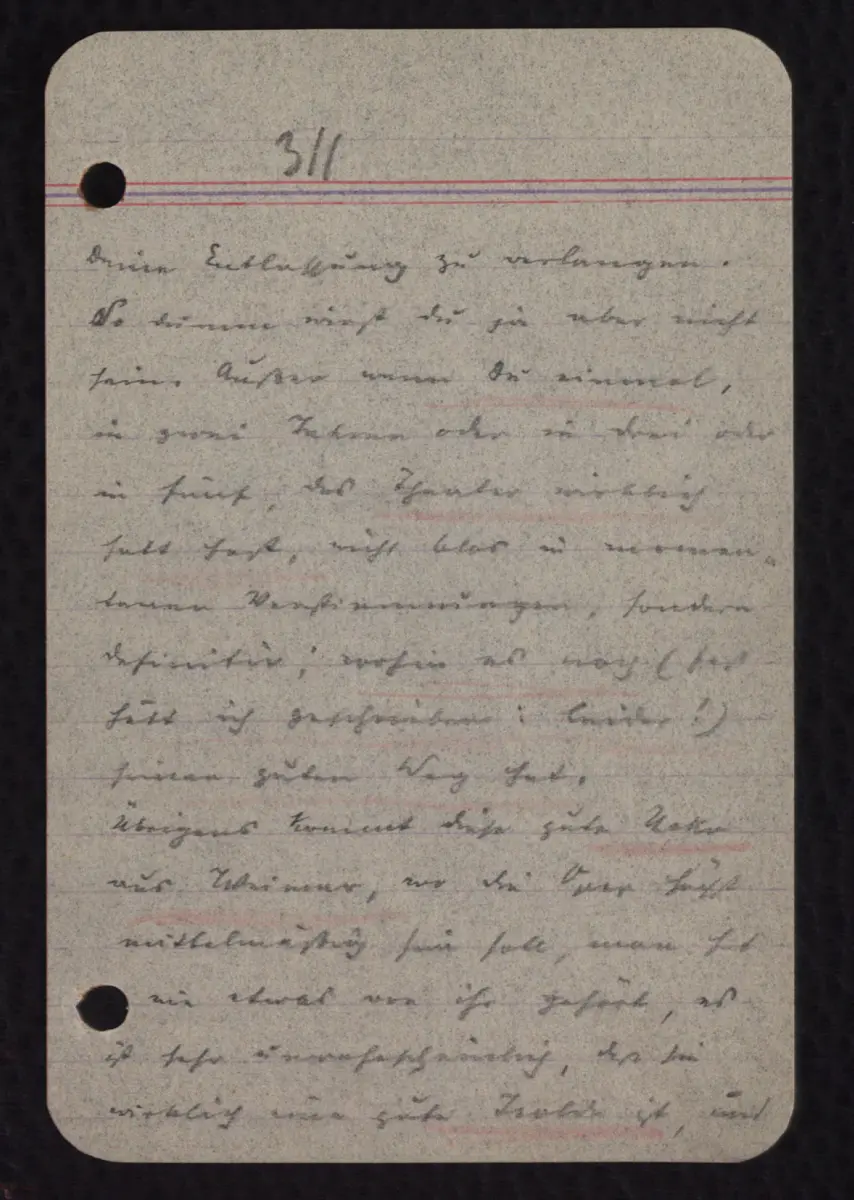 311
Deine Entlassung zu verlangen.
So dumm wirst du ja aber nicht
sein. Außer wenn Du einmal,
in zwei Jahren oder in drei oder
in fünf, das Theater wirklich
satt hast, nicht blos in momen„
tanen Verstimmungen, sondern
definitiv; wohin es noch (fast
hätt ich geschrieben: leider!)
seinen guten Weg hat.
Übrigens kommt diese gute
aus Weimar, wo die Oper höchst
mittelmäßig sein soll, man hat
nie etwas von ihr gehört, es
ist sehr unwahrscheinlich, dass sie
wirklich eine gute Isolde ist, und